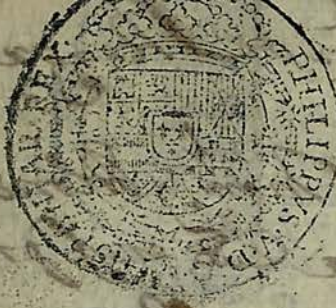 PHILIPPVS·V·D·
HISPANIAR·REX·